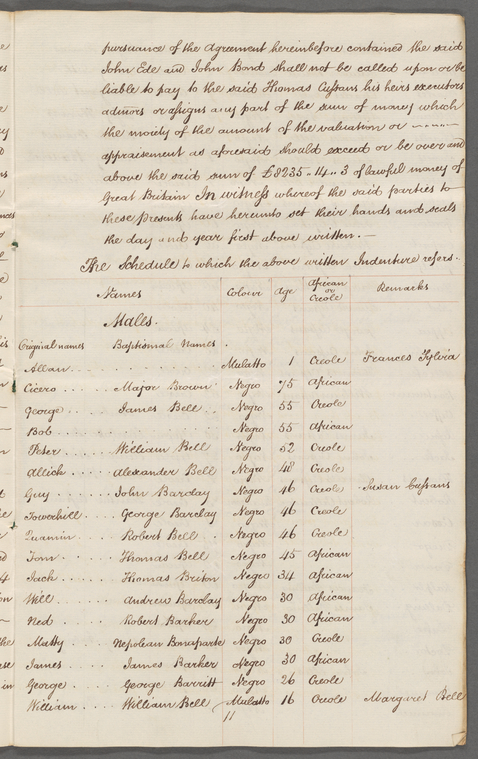 pursuance of the Agreement hereinbefore contained the said
John Ede and John Bond shall not be called upon or be
liable to pay to the said Thomas Cussans his heirs executors
admōrs or assigns any part of the sum of money which
the moiety of the amount of the valuation or
appraisement as aforesaid should exceed or be over and
above the said sum of £8235..14..3 of lawful money of
Great Britain In witness whereof the said parties to
these presents have hereunto set their hands and seals
the day and year first above written.—
The Schedule to which the above written Indenture refers.
Names Colour Age African or Creole Remarks
Males.
Original names Baptismal Names.
Allan Mulatto 1 Creole Frances Sylvia
Cicero Major Brown Negro 75 African
George James Bell Negro 55 Creole
Bob Negro 55 African
Peter William Bell Negro 52 Creole
Allick Alexander Bell Negro 48 Creole
Guy John Barclay Negro 46 Creole Susan Cussans
Towerhill George Barclay Negro 46 Creole
Quamin Robert Bell Negro 46 Creole
Tom Thomas Bell Negro 45 African
Jack Thomas Briton Negro 34 African
Will Andrew Barclay Negro 30 African
Ned Robert Barker Negro 30 African
Matty Nepolean Bonaparte Negro 30 Creole
James James Barker Negro 30 African
George George Barritt Negro 26 Creole
William William Bell Mulatto 16 Creole Margaret Bell
11